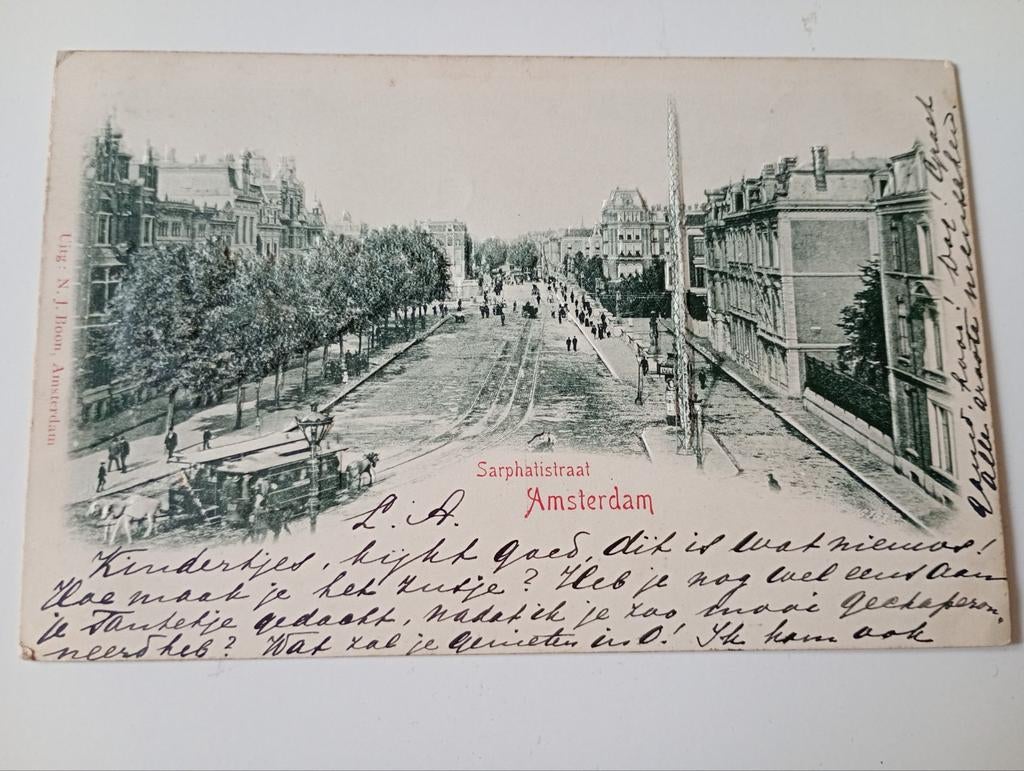 Uitg: N. J. Boon, Amsterdam
Sarphatistraat
Amsterdam
L. A.
Kindertjes, kijkt goed, dit is wat nieuws!
Hoe maak je het zusje? Heb je nog wel eens aan
je Tantetje gedacht, nadat ik je zoo mooi gechaperon-
neerd heb? Wat zal je genieten in O! Ik kom ook
gauw, hoor! Dat! Graet
Alle